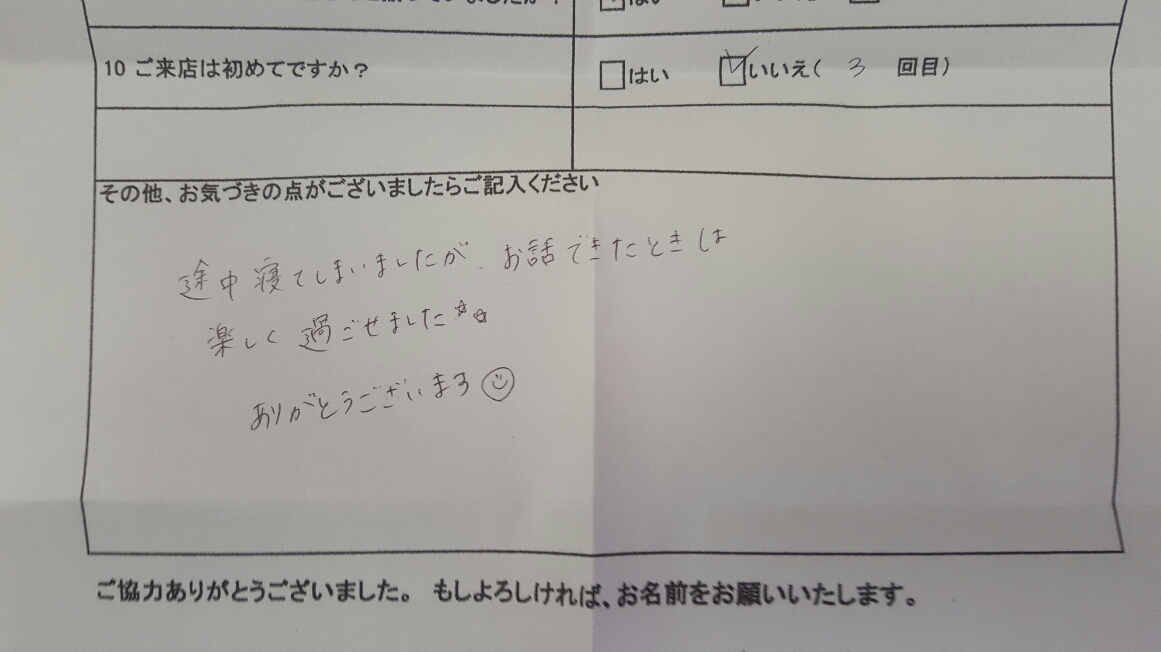 10 ご来店は初めてですか？ □はい ☑いいえ( 3 回目)
その他、お気づきの点がございましたらご記入ください
途中寝てしまいましたが、お話できたときは
楽しく過ごせました☆☆
ありがとうございます☺
ご協力ありがとうございました。 もしよろしければ、お名前をお願いいたします。